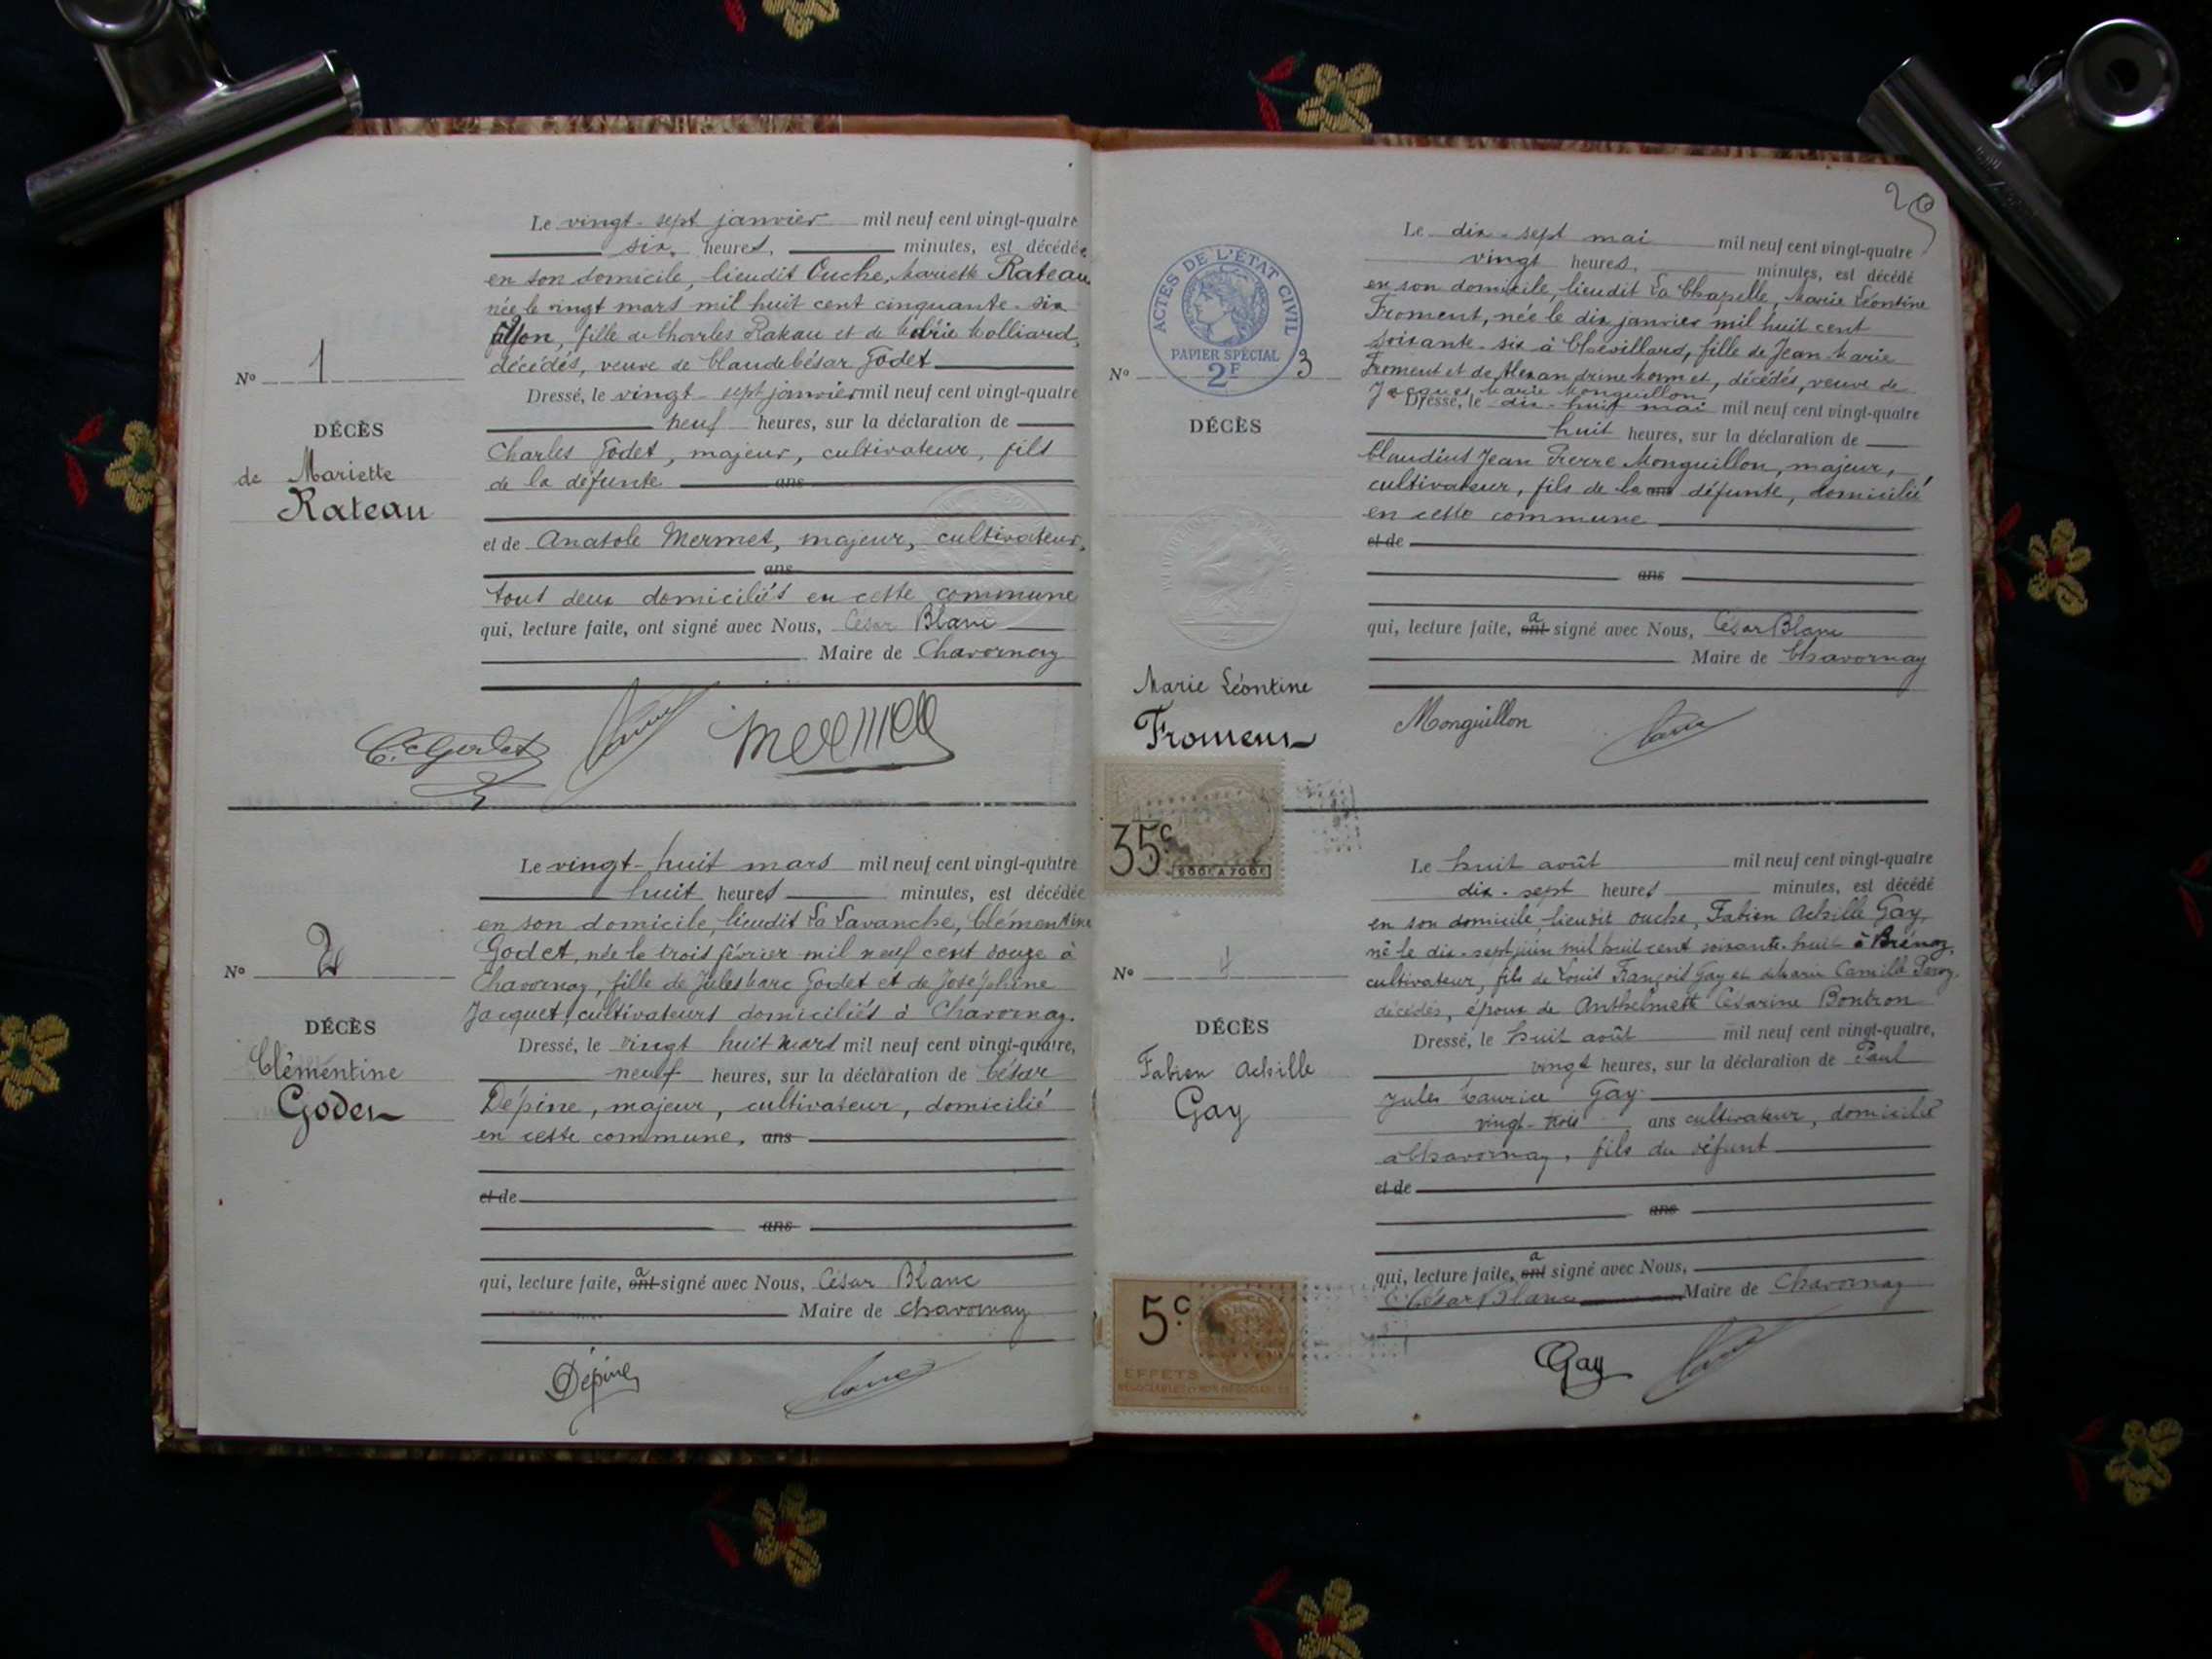 Le vingt-sept janvier mil neuf cent vingt-quatre
six, heures, minutes, est décédée
en son domicile, lieudit Ouche, Mariette Rateau
née le vingt mars mil huit cent cinquante-six
fille de Charles Rateau et de Marie Molliard,
décédés, veuve de Claude César Godet
Nº 1
Dressé, le vingt-sept janvier mil neuf cent vingt-quatre
neuf heures, sur la déclaration de
DÉCÈS
de Mariette
Rateau
Charles Godet, majeur, cultivateur, fils
de la défunte ans
et de Anatole Mermet, majeur, cultivateur,
ans
tous deux domiciliés en cette commune
qui, lecture faite, ont signé avec Nous, César Blanc
Maire de Chavornay
C. Godet
Mermet
Le vingt-huit mars mil neuf cent vingt-quatre
huit heures minutes, est décédée
en son domicile, lieudit La Lavanche, Clémentine
Godet, née le trois février mil neuf cent douze à
Chavornay, fille de Jules Marc Godet et de Joséphine
Jacquet, cultivateurs domiciliés à Chavornay.
Nº 2
DÉCÈS
Clémentine
Godet
Dressé, le vingt huit mars mil neuf cent vingt-quatre,
neuf heures, sur la déclaration de César
Dépine, majeur, cultivateur, domicilié
en cette commune, ans
et de
ans
qui, lecture faite, ont a signé avec Nous, César Blanc
Maire de Chavornay
Dépine
20
Le dix-sept mai mil neuf cent vingt-quatre
vingt heures, minutes, est décédé
en son domicile, lieudit La Chapelle, Marie Léontine
Froment, née le dix janvier mil huit cent
soixante-six à Chevillard, fille de Jean Marie
Froment et de Alexandrine Mermet, décédés, veuve de
Jacques Marie Monguillon
ACTES DE L'ÉTAT CIVIL
PAPIER SPÉCIAL
2F
Nº 3
DÉCÈS
Dressé, le dix-huit mai mil neuf cent vingt-quatre
huit heures, sur la déclaration de
Claudius Jean Pierre Monguillon, majeur,
cultivateur, fils de la ans défunte, domicilié
en cette commune
et de
ans
qui, lecture faite, ont a signé avec Nous, César Blanc
Maire de Chavornay
Marie Léontine
Froment
Monguillon
35c
600F A 700F
Le huit août mil neuf cent vingt-quatre
dix-sept heures minutes, est décédé
en son domicile, lieudit Ouche, Fabien Achille Gay,
né le dix-sept juin mil huit cent soixante-huit à Brénaz,
cultivateur, fils de Louis François Gay et de Marie Camille
décédés, époux de Anthelmette Césarine Bontron
Nº 4
DÉCÈS
Fabien Achille
Gay
Dressé, le huit août mil neuf cent vingt-quatre,
vingt heures, sur la déclaration de Paul
Jules Maurice Gay
vingt-trois ans cultivateur, domicilié
à Chavornay, fils du défunt
et de
ans
qui, lecture faite, ont a signé avec Nous,
César Blanc Maire de Chavornay
Gay
5c
EFFETS
NÉGOCIABLES OU NON NÉGOCIABLES